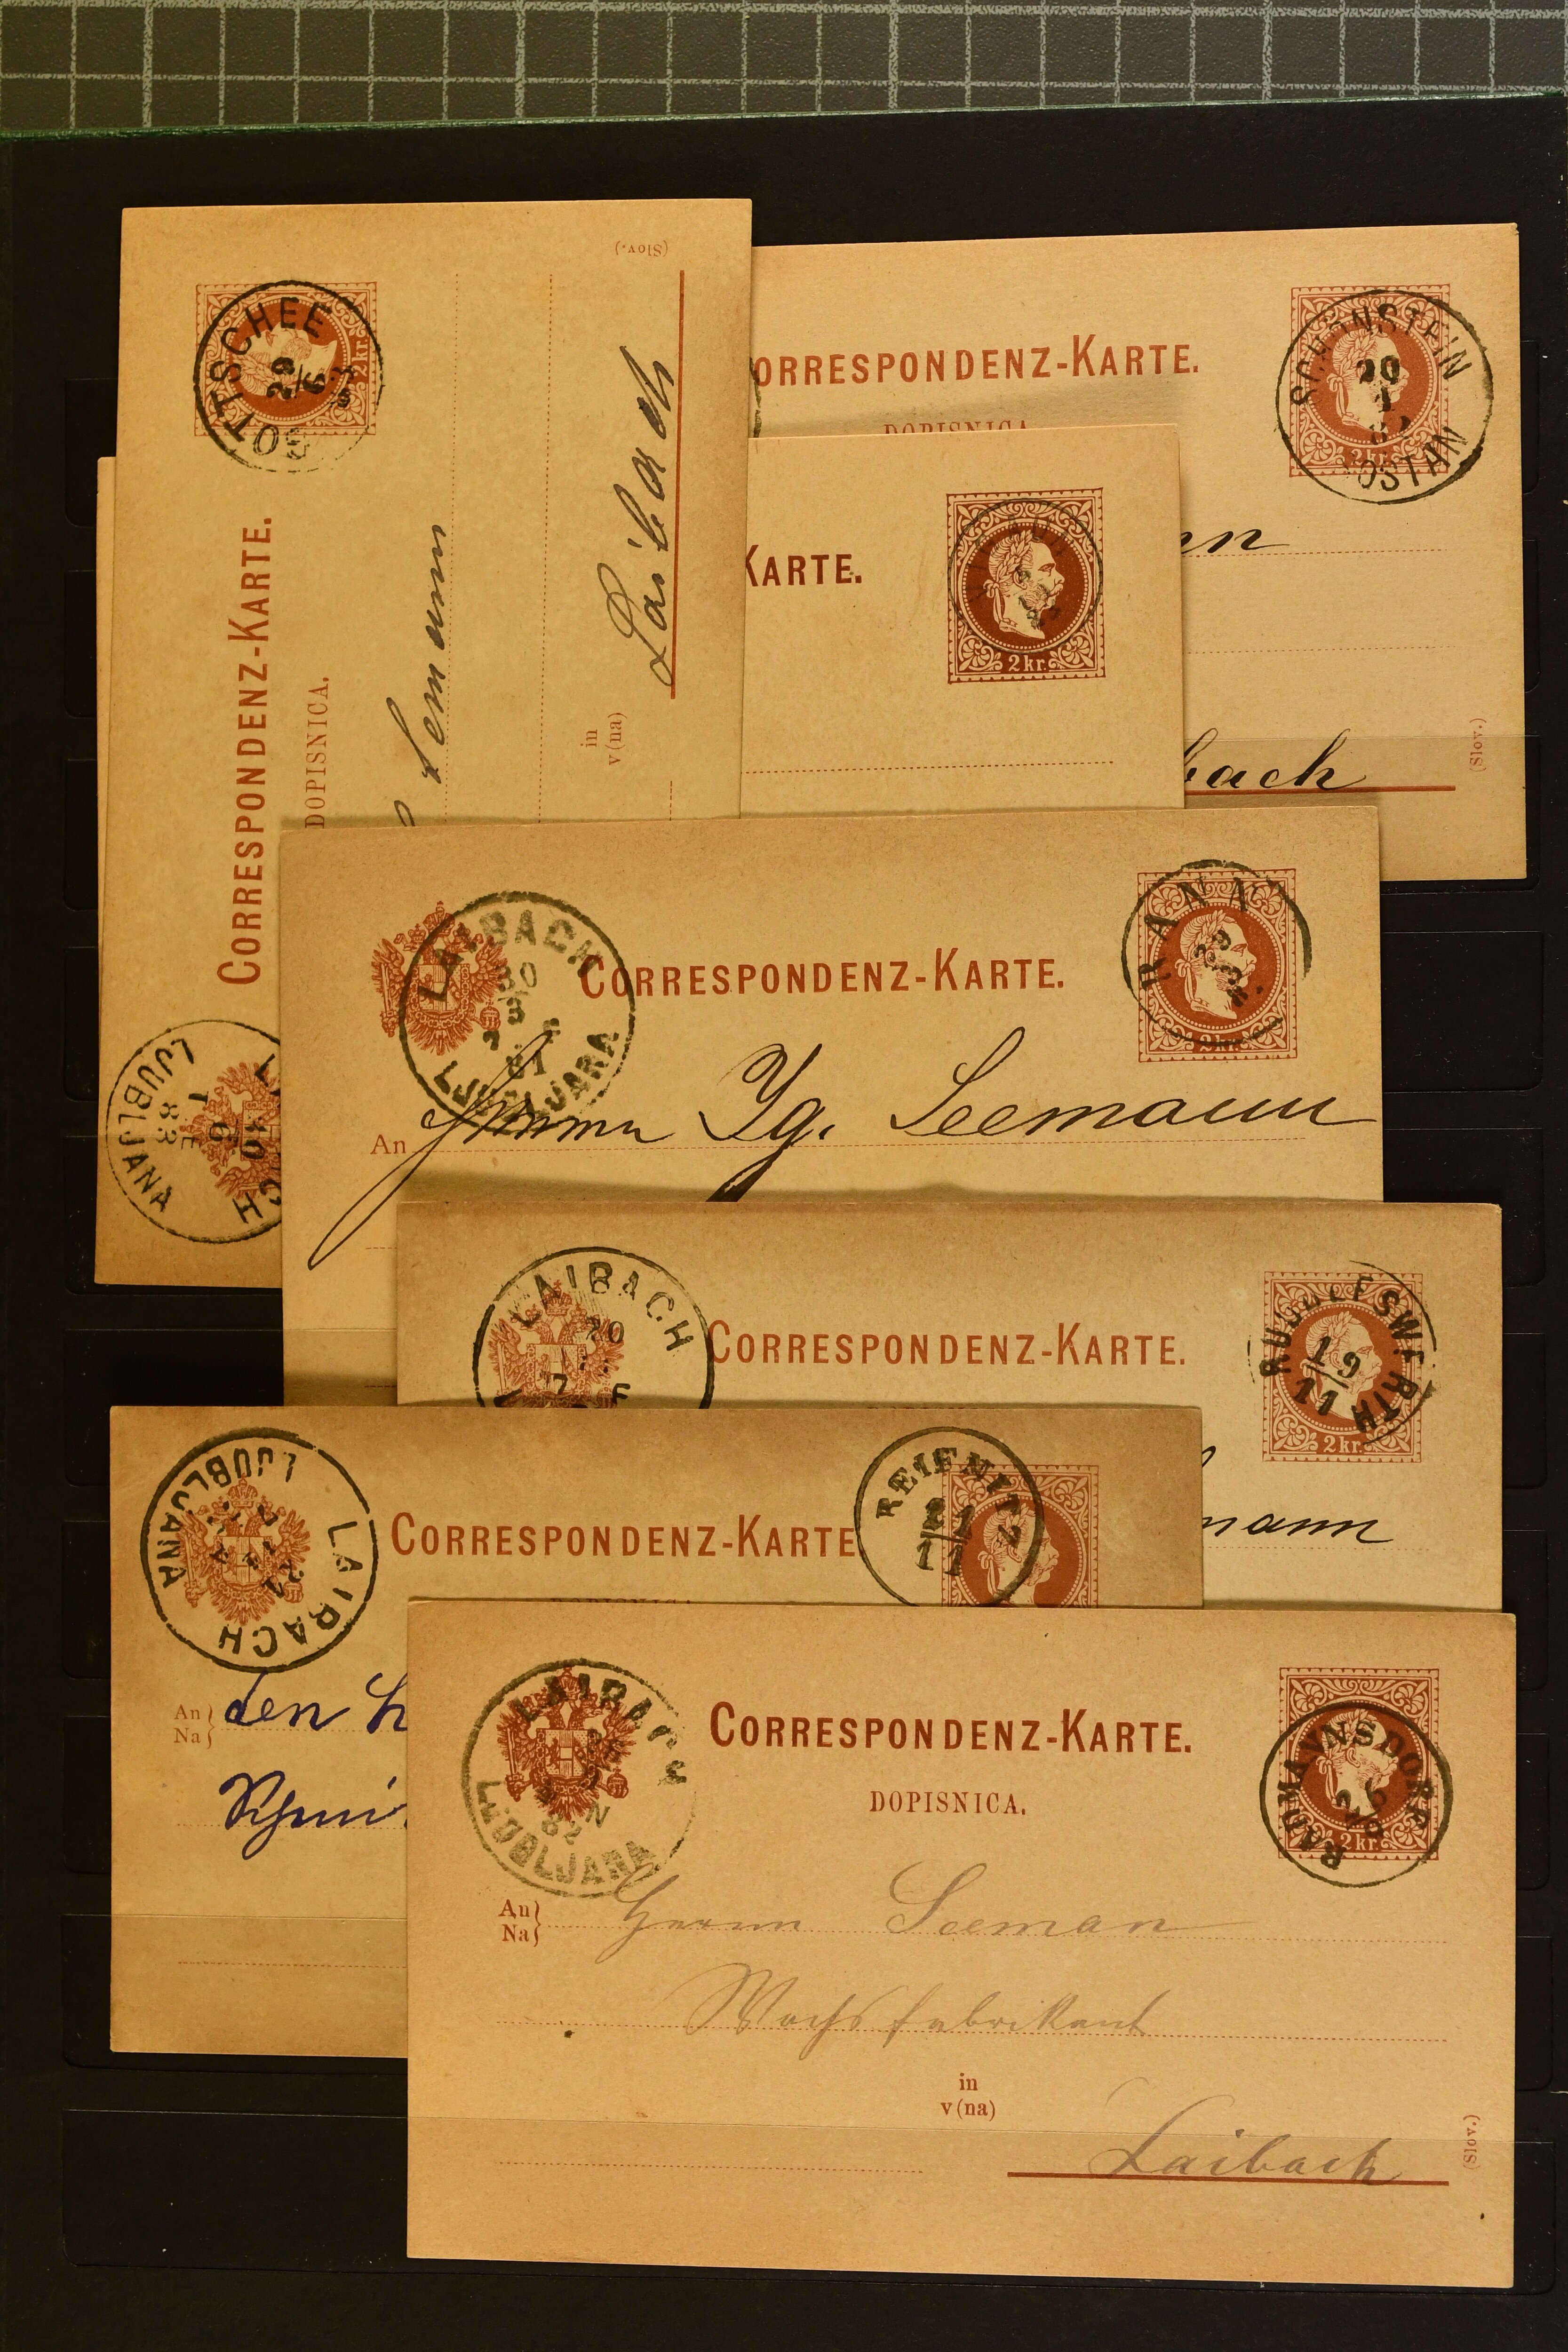 (Slov.)
GOTTSCHEE
29
6
2 kr.
CORRESPONDENZ-KARTE.
DOPISNICA.
Semann
in
v(na)
Laibach
ORRESPONDENZ-KARTE.
DOPISNICA
SCHÖNSTEIN
20
ŠOSTAN
2 kr.
nn
bach
(Slov.)
KARTE.
2 kr.
LAIBACH
10
6
7 E
83
LJUBLJANA
LAIBACH
30
3
81
LJUBLJANA
CORRESPONDENZ-KARTE.
RANN
2 kr.
An Herrn Ig. Seemann
LAIBACH
20
7 F
CORRESPONDENZ-KARTE.
RUDOLFSWERTH
19
11
2 kr.
mann
LAIBACH
LJUBLJANA
CORRESPONDENZ-KARTE
REIFNITZ
21
11
An
Na
den H
LAIBACH
N
82
LJUBLJANA
CORRESPONDENZ-KARTE.
DOPISNICA.
RADMANNSDORF
26
2 kr.
An
Na
Herrn Seeman
Wachsfabrikant
in
v(na)
Laibach
(Slov.)